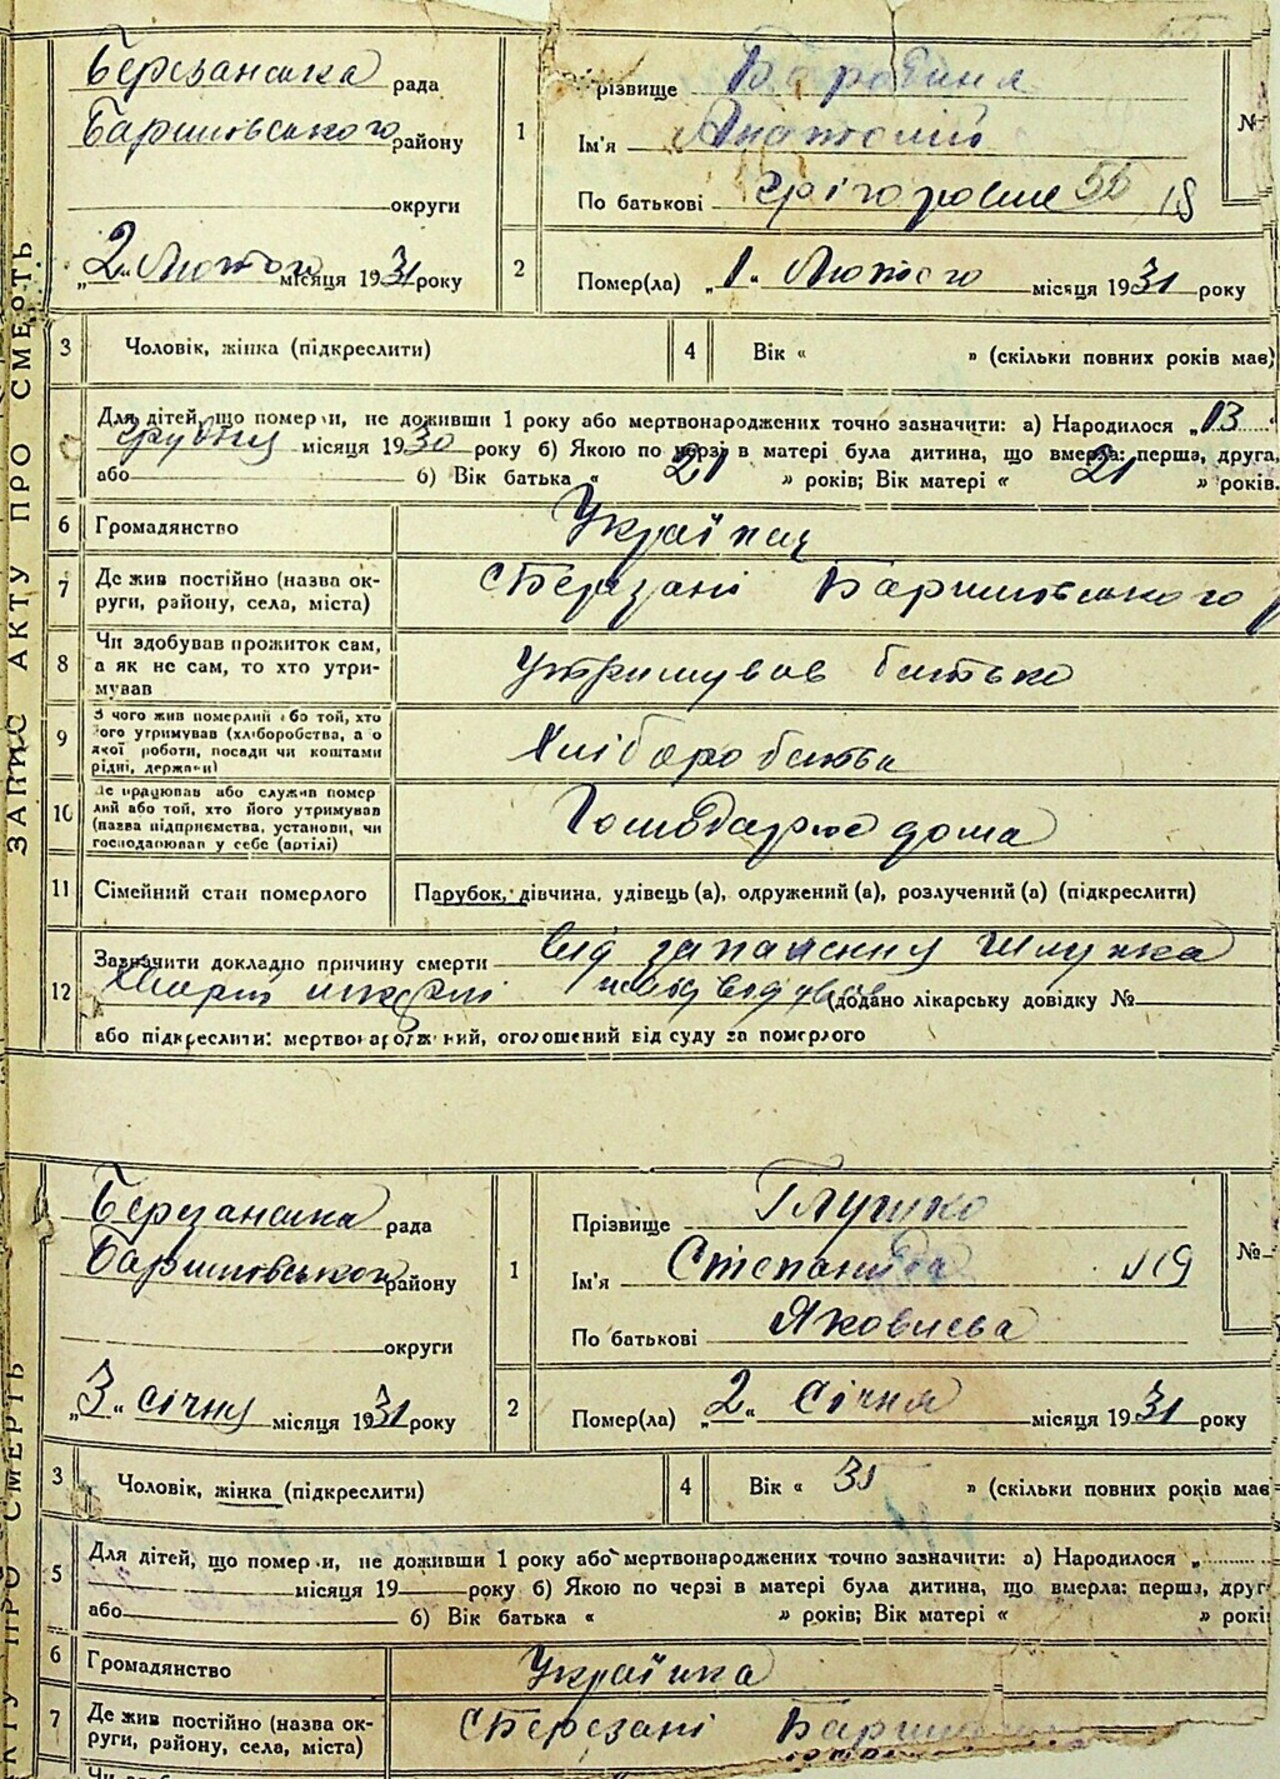 ЗАПИС АКТУ ПРО СМЕРТЬ
Березанська рада
Баришовського району
округи
„2“ Лютого місяця 1931 року
1
Прізвище Бородиня
Ім'я Анатолій
По батькові Грігоровіч 55 18
№
2
Помер(ла) „1“ Лютого місяця 1931 року
3 Чоловік, жінка (підкреслити)
4 Вік « » (скільки повних років має)
Для дітей, що померли, не доживши 1 року або мертвонароджених точно зазначити: а) Народилося „13“
Грудня місяця 1930 року б) Якою по черзі в матері була дитина, що вмерла: перша, друга,
або б) Вік батька « 21 » років; Вік матері « 21 » років.
6 Громадянство Українец
7 Де жив постійно (назва округи, району, села, міста) с Березані Баришовського р
8 Чи здобував прожиток сам, а як не сам, то хто утримував Утримував батько
9 З чого жив померлий або той, хто його утримував (хліборобства, а о якої роботи, посади чи коштами рідні, держави) Хліборобства
10 Де працював або служив померлий або той, хто його утримував (назва підприємства, установи, чи господарював у себе (артілі) Господарює дома
11 Сімейний стан померлого Парубок, дівчина, удівець (а), одружений (а), розлучений (а) (підкреслити)
12 Зазначити докладно причину смерти від запалення шлунка
(додано лікарську довідку №
або підкреслити: мертвонароджений, оголошений від суду за померлого
Березанська рада
Баришовського району
округи
„3“ січня місяця 1931 року
1
Прізвище Глушко
Ім'я Степанида №19
По батькові Яковлєва
№
2
Помер(ла) „2“ Січня місяця 1931 року
3 Чоловік, жінка (підкреслити)
4 Вік « 35 » (скільки повних років має
5 Для дітей, що померли, не доживши 1 року або мертвонароджених точно зазначити: а) Народилося „
місяця 19 року б) Якою по черзі в матері була дитина, що вмерла: перша, друг
або б) Вік батька « » років; Вік матері « » рокі
6 Громадянство Українка
7 Де жив постійно (назва округи, району, села, міста) с Березані